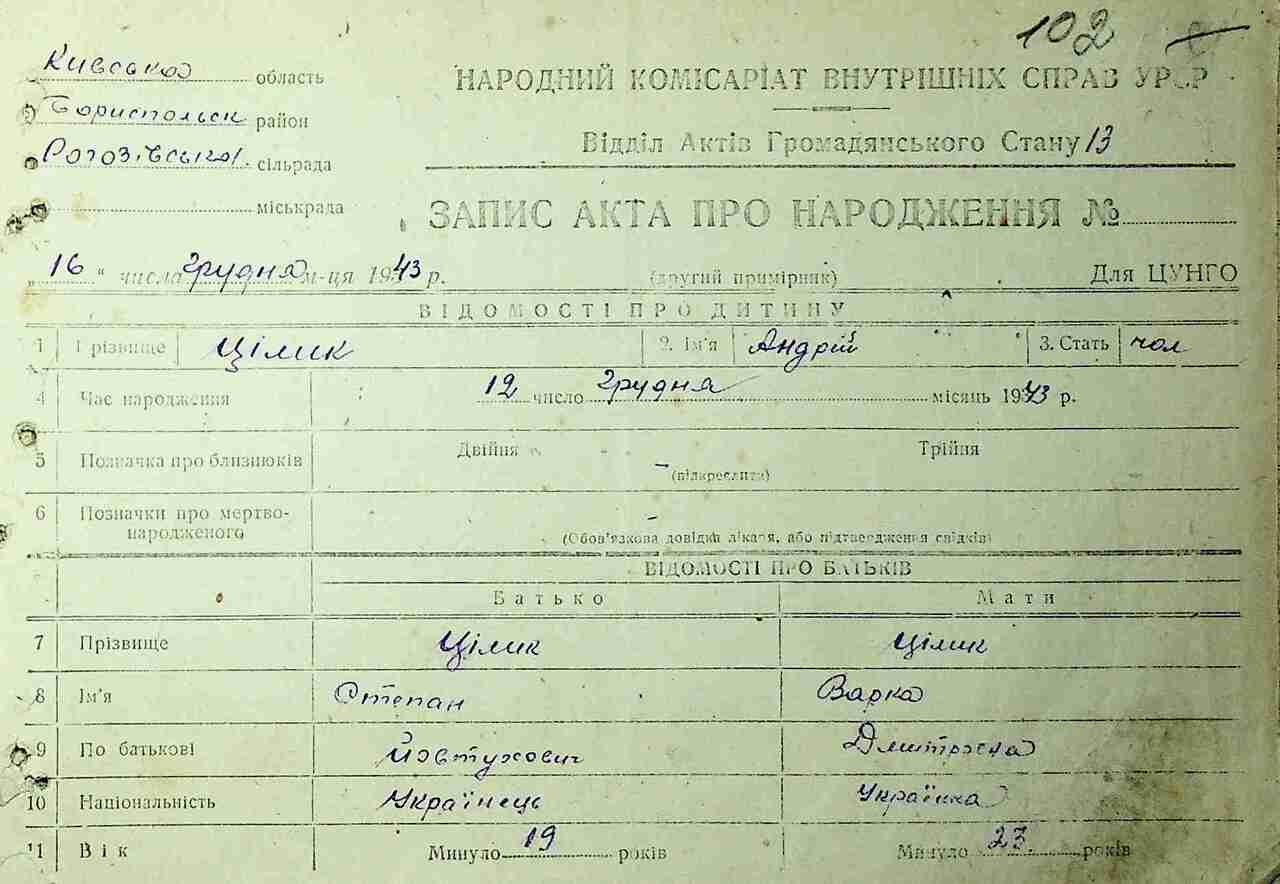 102
Київська область
Бориспольск район
Рогозівська сільрада
міськрада
НАРОДНИЙ КОМІСАРІАТ ВНУТРІШНІХ СПРАВ УРСР
Відділ Актів Громадянського Стану 13
ЗАПИС АКТА ПРО НАРОДЖЕННЯ №
„16" числа грудня м-ця 1943 р.
(другий примірник)
Для ЦУНГО
ВІДОМОСТІ ПРО ДИТИНУ
1 Прізвище Цілик 2. Ім'я Андрій 3. Стать чол
4 Час народження 12 число грудня місяць 1943 р.
5 Позначка про близнюків Двійня Трійня
(підкреслити)
6 Позначки про мертво-
народженого
(Обов'язкова довідка лікаря, або підтвердження свідків)
ВІДОМОСТІ ПРО БАТЬКІВ
Батько Мати
7 Прізвище Цілик Цілик
8 Ім'я Степан Варка
9 По батькові Йовтухович Дмитровна
10 Національність Українець Українка
11 Вік Минуло 19 років Минуло 23 років